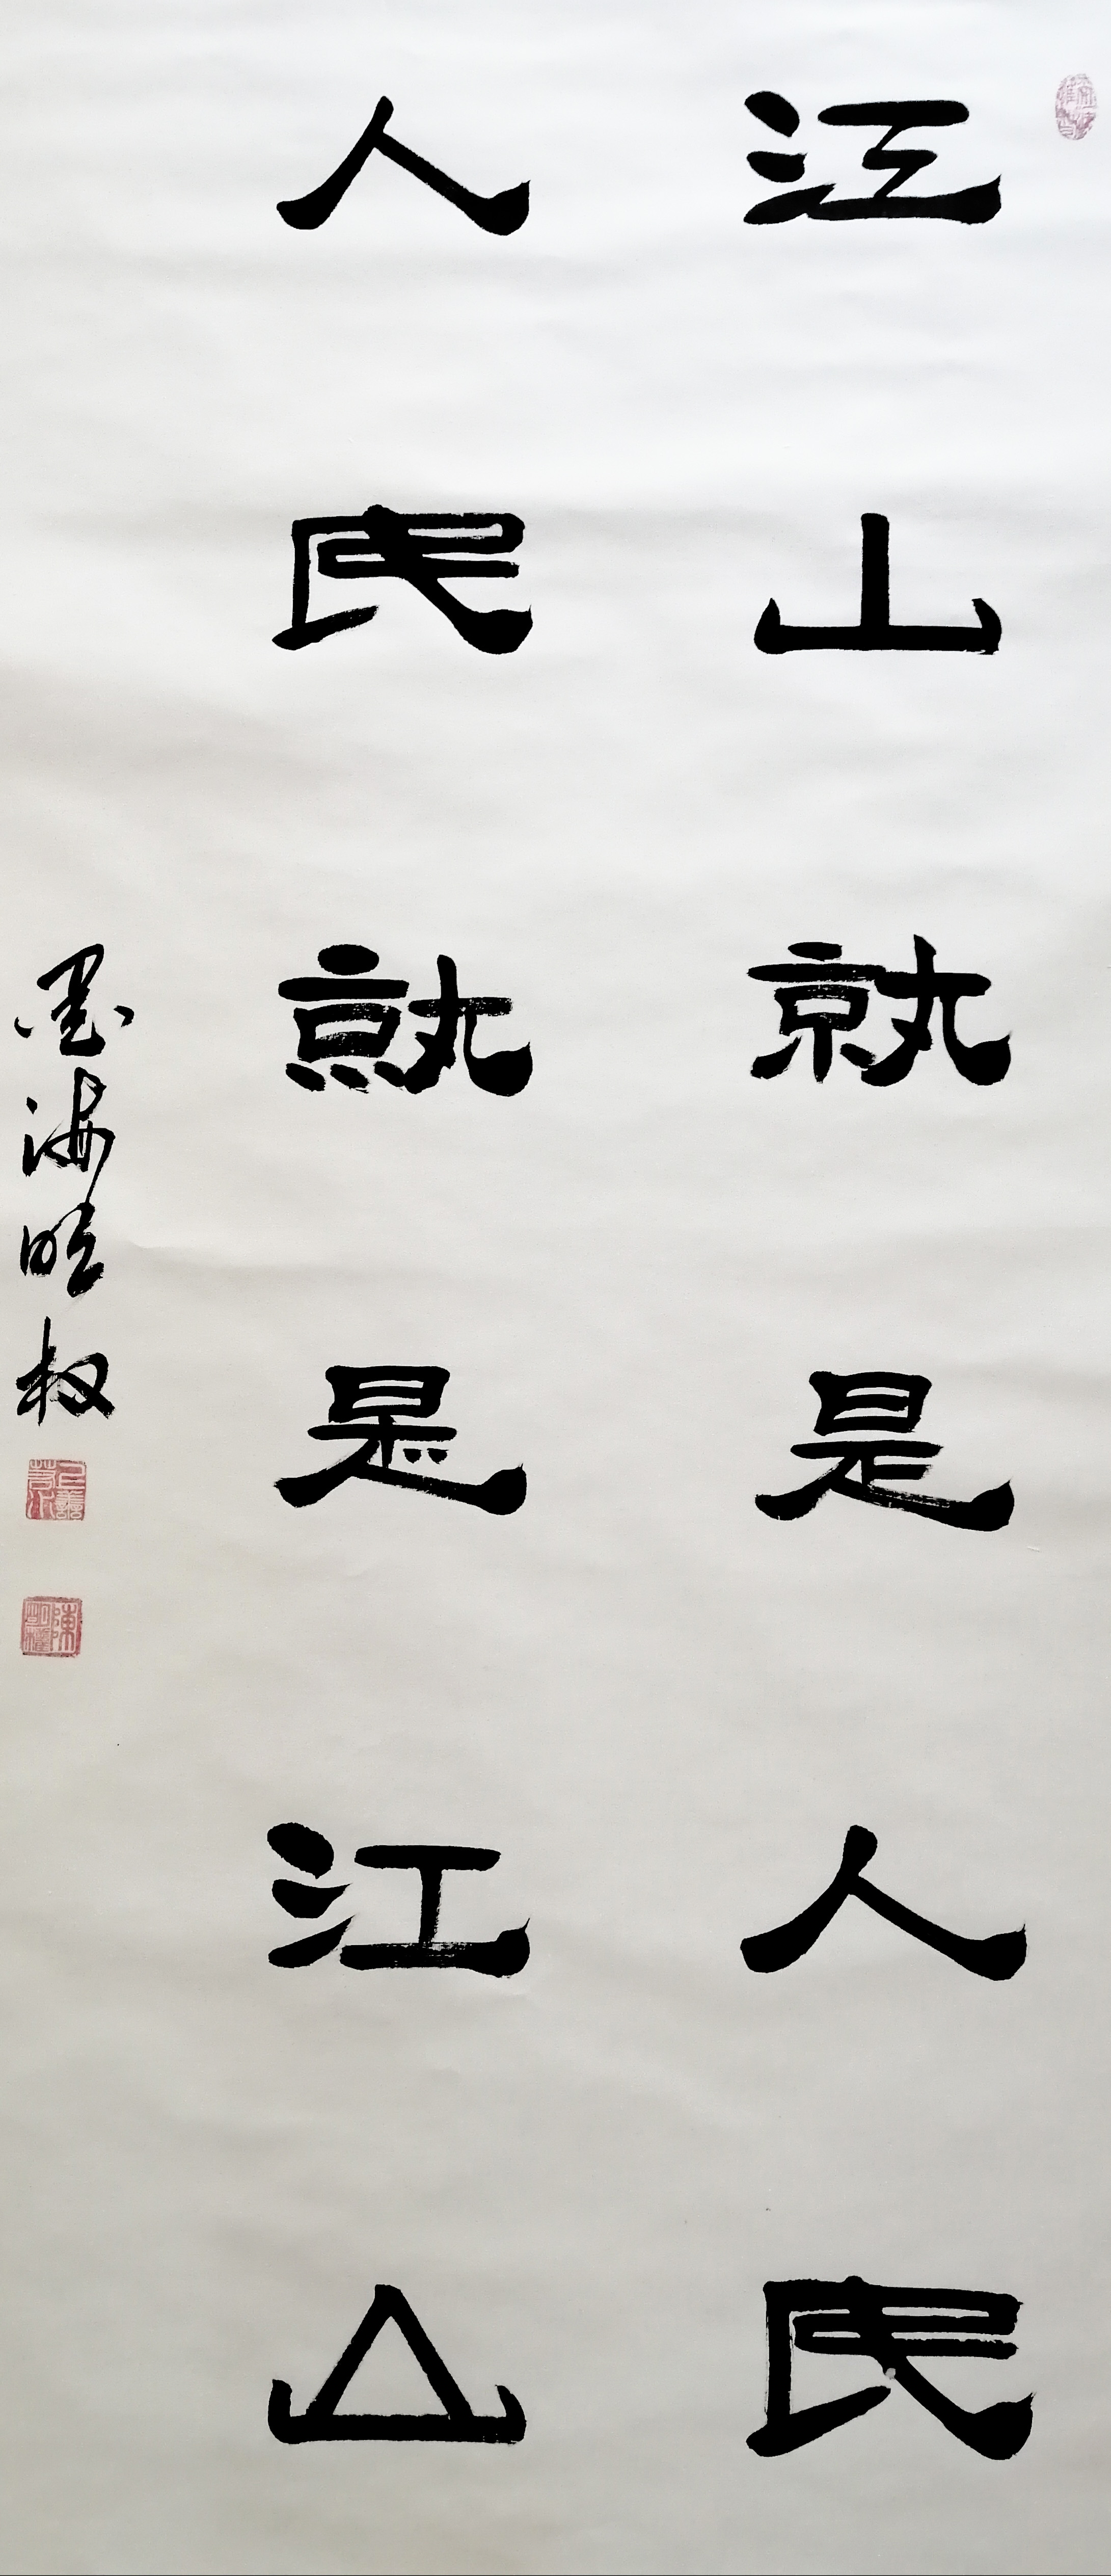 江山就是人民
人民就是江山
墨海明权